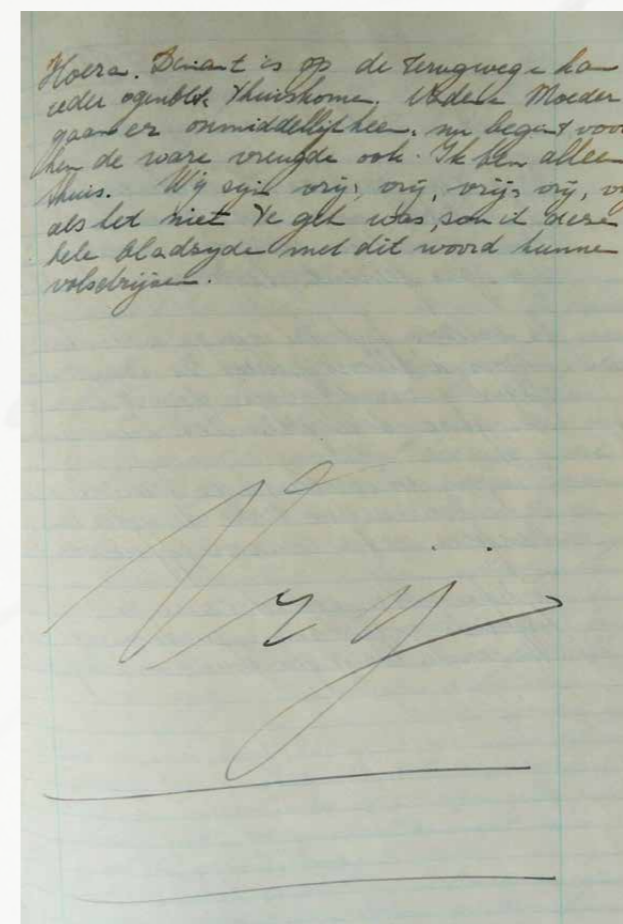 Hoera. Denant is op de terugweg e kan
ieder ogenblik thuiskome. Vader e Moeder
gaan er onmiddellijk heen, nu begint voor
hen de ware vreugde ook. Ik ben alleen
thuis. Wij zijn vrij, vrij, vrij, vrij,
als het niet te gek was, zou ik deze
hele bladzyde met dit woord kunne
volschrijven.
Vrij